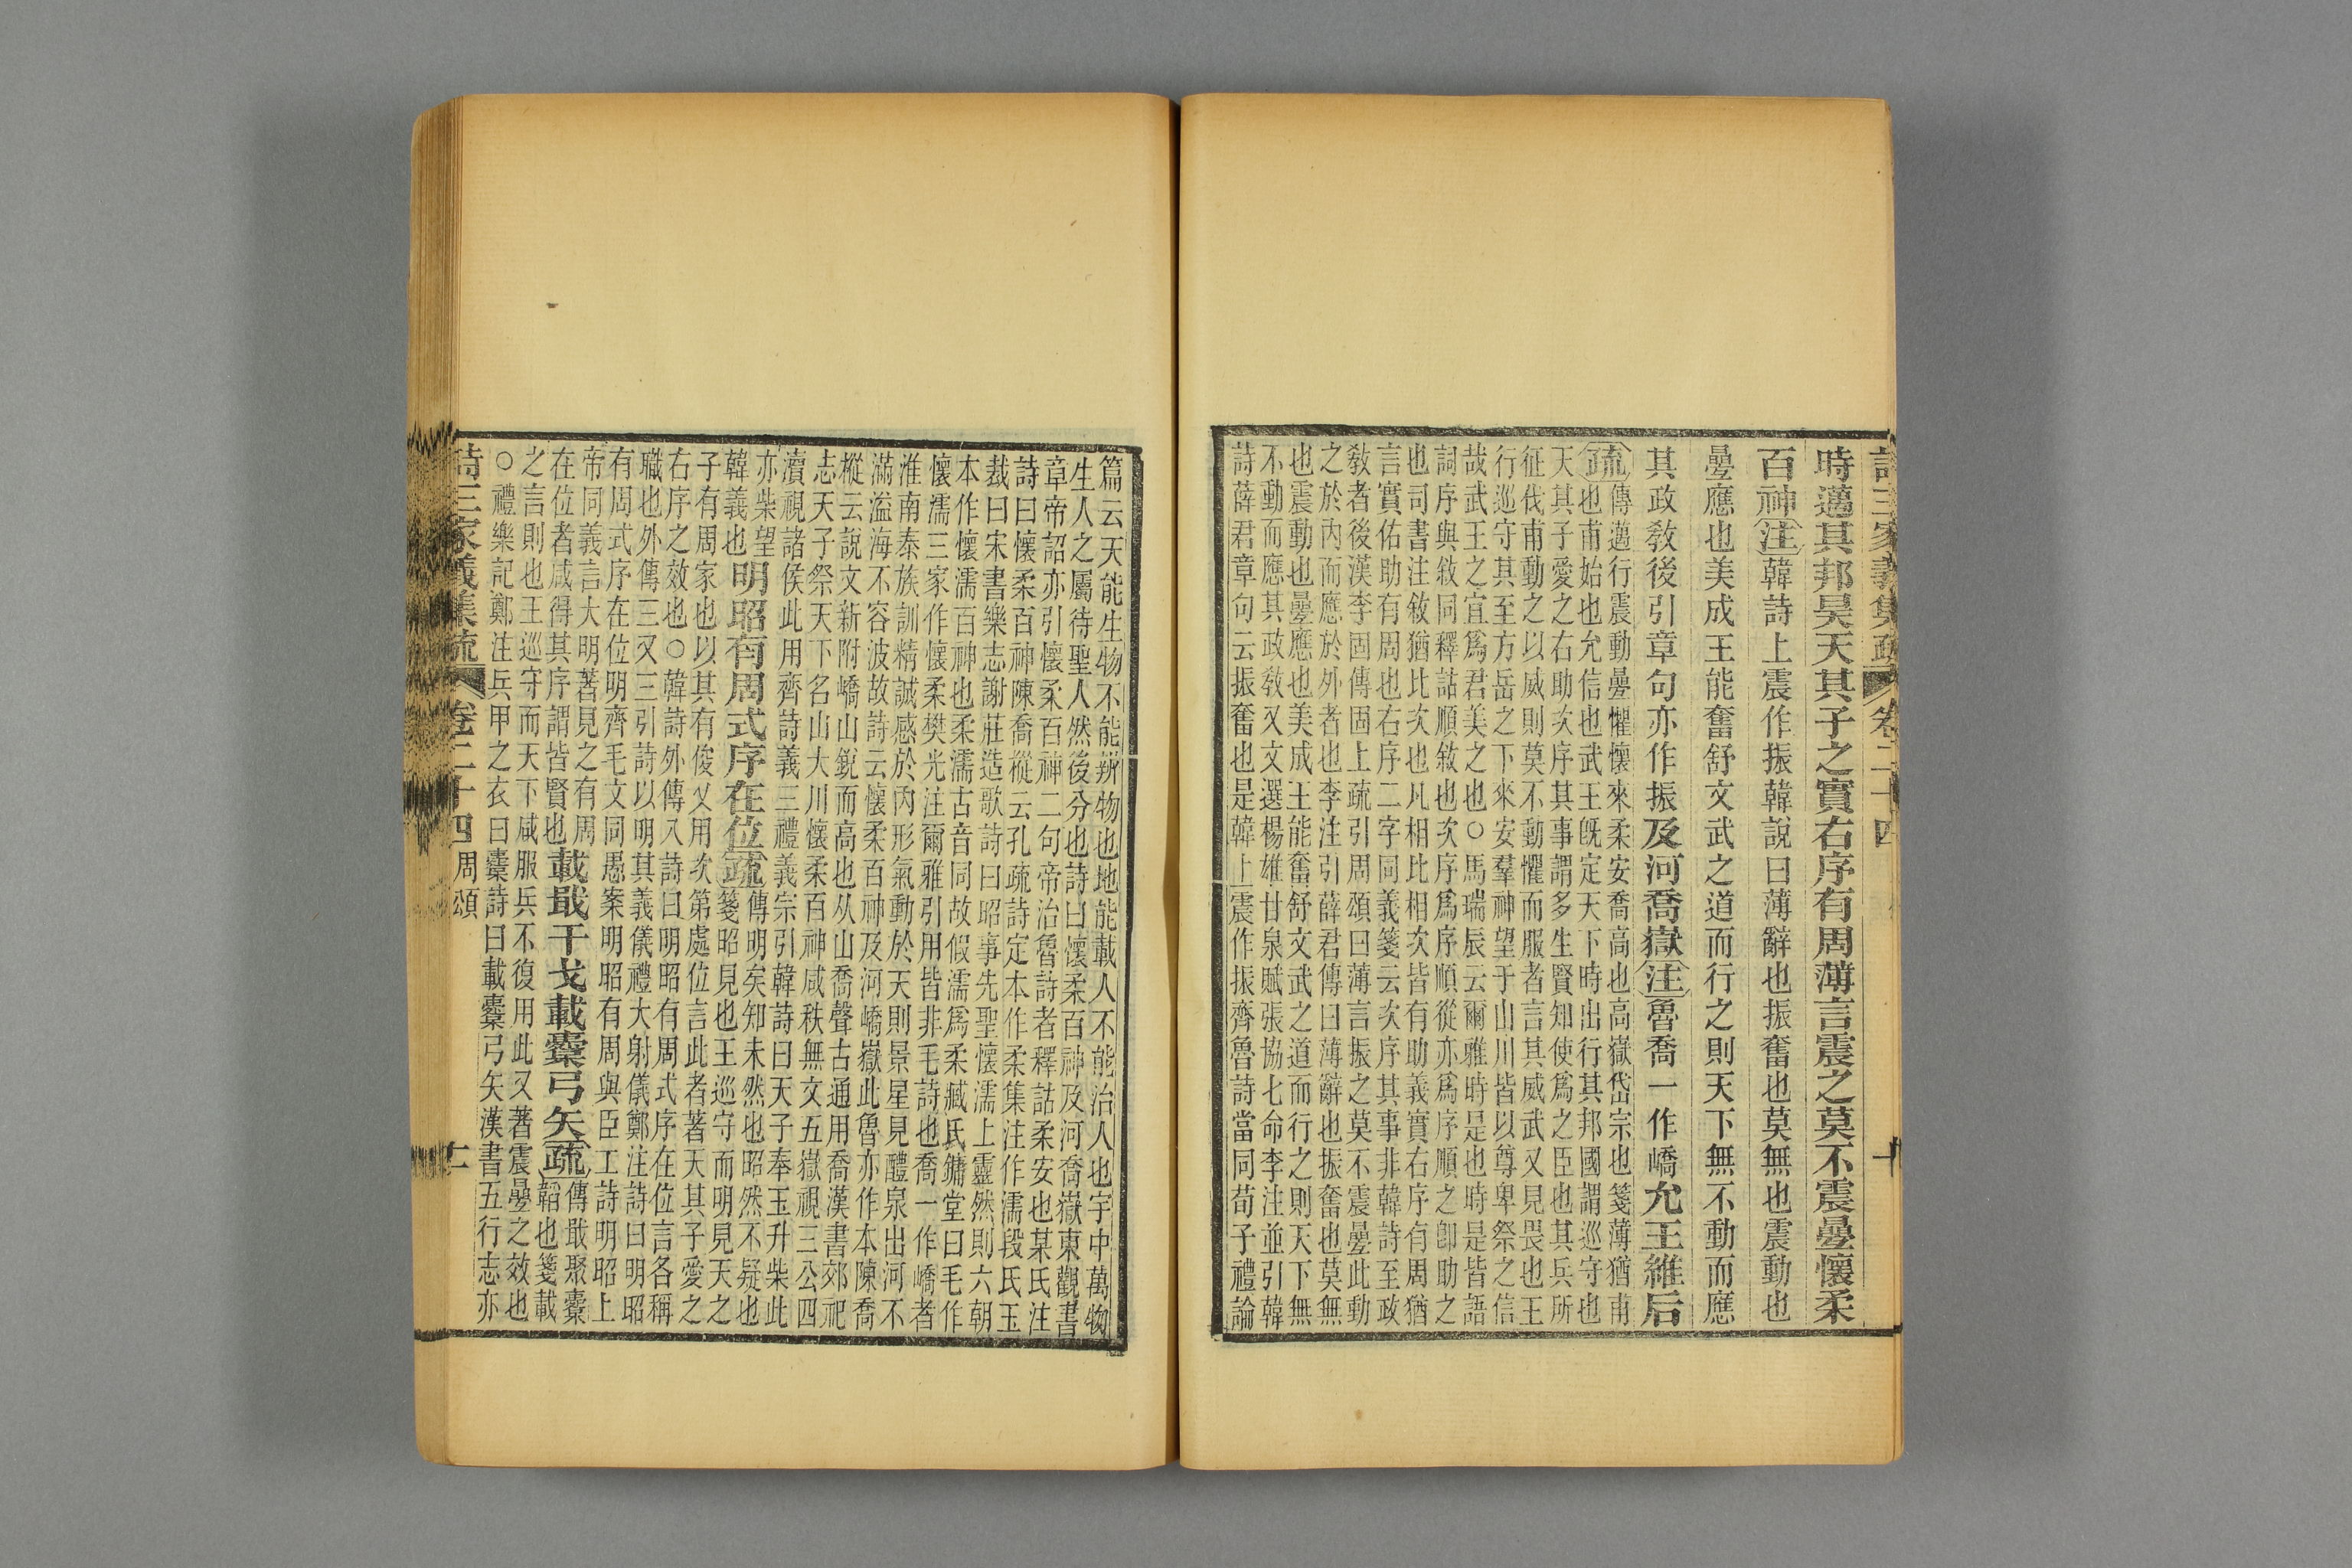 時邁其邦昊天其子之實右序有周薄言震之莫不震疊懷柔
百神注韓詩上震作振韓說曰薄辭也振奮也莫無也震動也
疊應也美成王能奮舒文武之道而行之則天下無不動而應
其政教後引章句亦作振及河喬嶽注魯喬一作嶠允王維后
疏傳邁行震動疊懼懷來柔安喬高也高嶽岱宗也箋薄猶甫
也甫始也允信也武王既定天下時出行其邦國謂巡守也
天其子愛之右助次序其事謂多生賢知使爲之臣也其兵所
征伐甫動之以威則莫不動懼而服者言其威武又見畏也王
行巡守其至方岳之下來安羣神望于山川皆以尊卑祭之信
哉武王之宜爲君美之也○馬瑞辰云爾雅時是也時是皆語
詞序與敘同釋詁順敘也次序爲序順從亦爲序順之卽助之
也司書注敘猶比次也凡相比相次皆有助義實右序有周猶
言實佑助有周也右序二字同義箋云次序其事非韓詩至政
教者後漢李固傳固上疏引周頌曰薄言振之莫不震疊此動
之於內而應於外者也李注引薛君傳曰薄辭也振奮也莫無
也震動也疊應也美成王能奮舒文武之道而行之則天下無
不動而應其政教又文選楊雄甘泉賦張協七命李注並引韓
詩薛君章句云振奮也是韓上震作振齊魯詩當同荀子禮論
篇云天能生物不能辨物也地能載人不能治人也宇中萬物
生人之屬待聖人然後分也詩曰懷柔百神及河喬嶽東觀書
章帝詔亦引懷柔百神二句帝治魯詩者釋詁柔安也某氏注
詩曰懷柔百神陳喬樅云孔疏詩定本作柔集注作濡段氏玉
裁曰宋書樂志謝莊造歌詩曰昭事先聖懷濡上靈然則六朝
本作懷濡百神也柔濡古音同故假濡爲柔臧氏鏞堂曰毛作
懷濡三家作懷柔樊光注爾雅引用皆非毛詩也喬一作嶠者
淮南泰族訓精誠感於內形氣動於天則景星見醴泉出河不
滿溢海不容波故詩云懷柔百神及河嶠嶽此魯亦作本陳喬
樅云說文新附嶠山銳而高也从山喬聲古通用喬漢書郊祀
志天子祭天下名山大川懷柔百神咸秩無文五嶽視三公四
瀆視諸侯此用齊詩義三禮義宗引韓詩曰天子奉玉升柴此
亦柴望
韓義也明昭有周式序在位疏傳明矣知未然也昭然不疑也
箋昭見也王巡守而明見天之
子有周家也以其有俊乂用次第處位言此者著天其子愛之
右序之效也○韓詩外傳八詩曰明昭有周式序在位言各稱
職也外傳三又三引詩以明其義儀禮大射儀鄭注詩曰明昭
有周式序在位明齊毛文同愚案明昭有周與臣工詩明昭上
帝同義言大明著見之有周
在位者咸得其序謂皆賢也載戢干戈載櫜弓矢疏傳戢聚櫜
韜也箋載
之言則也王巡守而天下咸服兵不復用此又著震疊之效也
○禮樂記鄭注兵甲之衣曰櫜詩曰載櫜弓矢漢書五行志亦
詩三家義集疏 卷二十四 周頌 十一